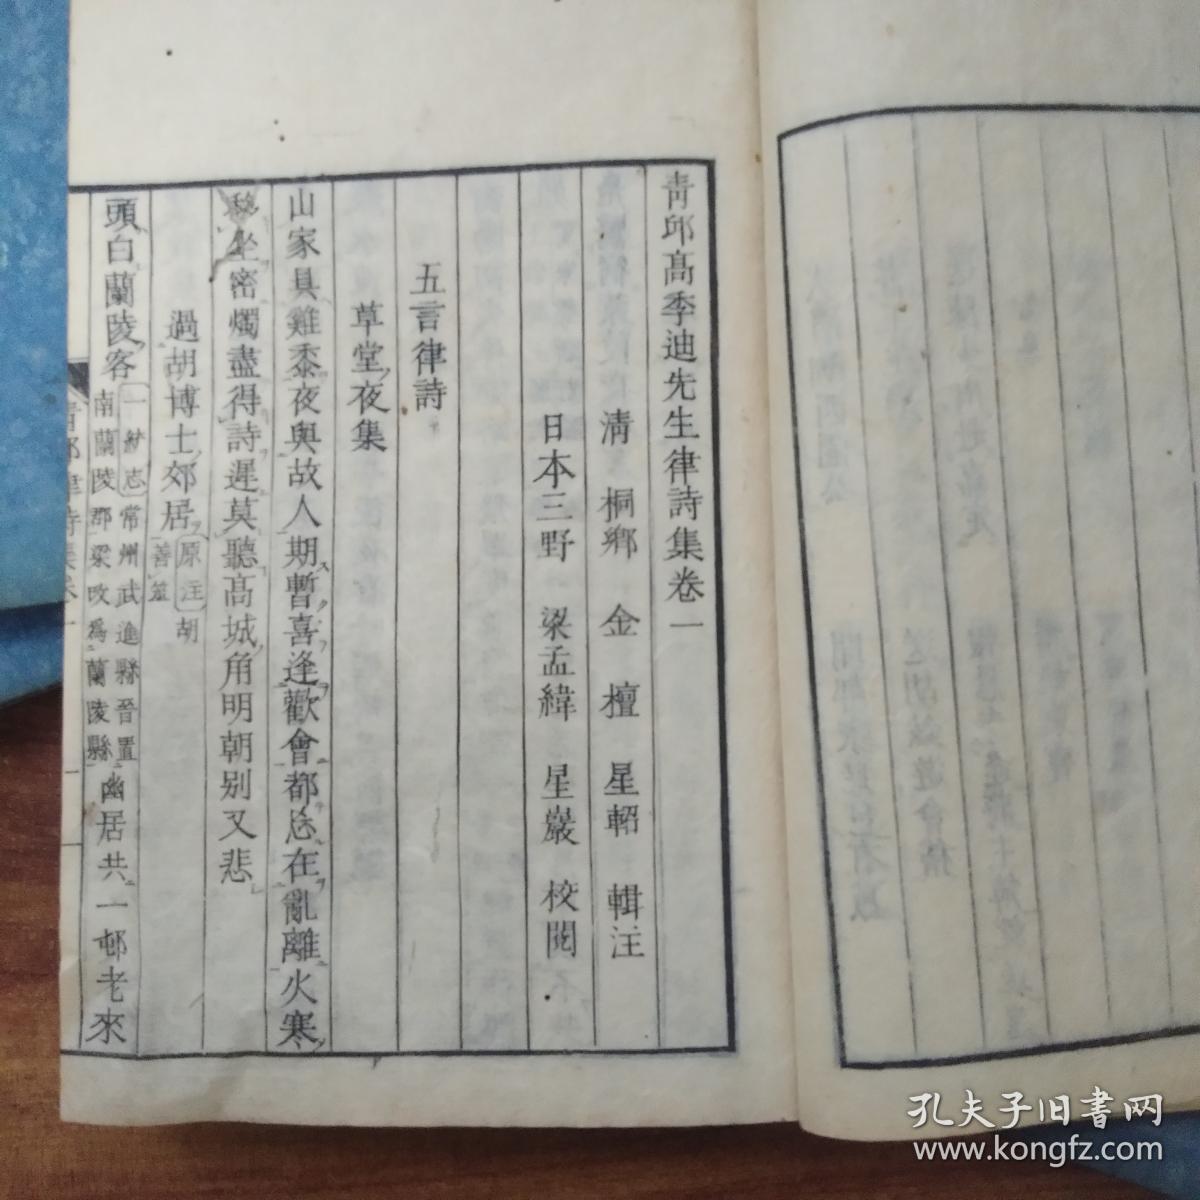 青邱高季迪先生律詩集卷一
清 桐鄉 金 檀 星軺 輯注
日本三野 梁孟緯 星巖 校閱
五言律詩
草堂夜集
山家具雞黍夜與故人期暫喜逢歡會都忘在亂離火寒
坐密燭盡得詩遲莫聽高城角明朝別又悲
過胡博士郊居
原注胡
善
頭白蘭陵客
一統志常州武進縣晉置
南蘭陵郡梁改爲蘭陵縣
幽居共一邨老來
青邱律詩集卷一
孔夫子旧书网
www.kongfz.com